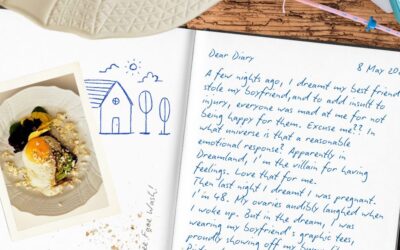 Dear Diary
8 May 202
A few nights ago, I dreamt my best friend
stole my boyfriend, and to add insult to
injury, everyone was mad at me for not
being happy for them. Excuse me?? In
what universe is that a reasonable
emotional response? Apparently in
Dreamland, I'm the villain for having
feelings. Love that for me.
Then last night I dreamt I was pregnant.
I'm 48. My ovaries audibly laughed when
I woke up. But in the dream, I was
wearing my boyfriend's graphic tees,
proudly showing off my
Wash!